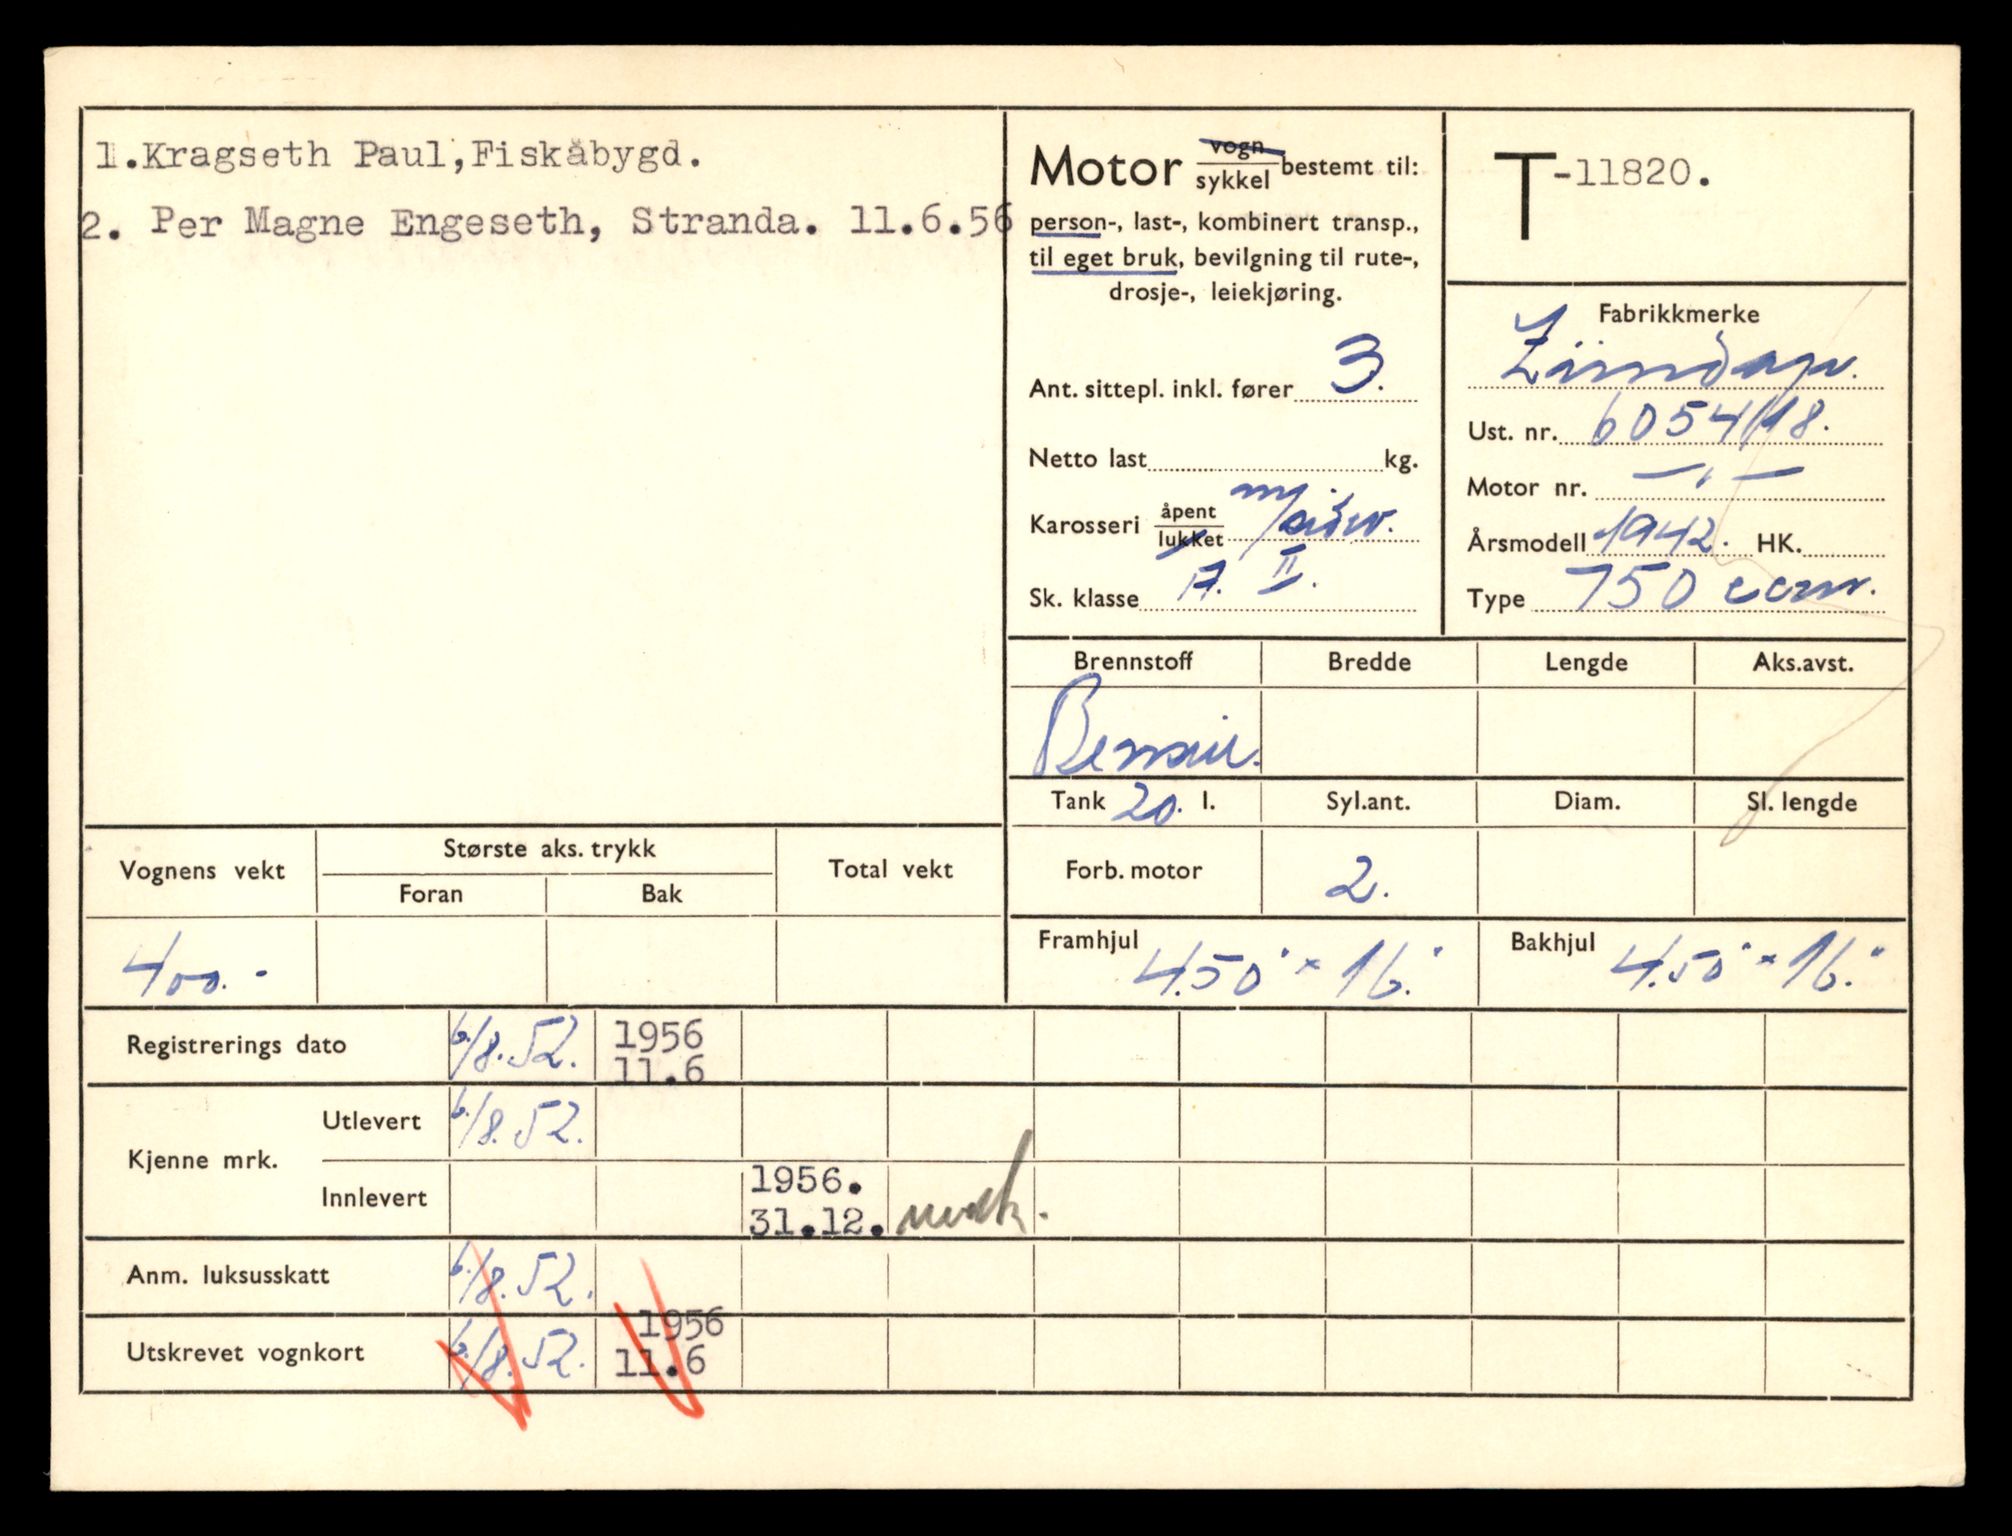 1.Kragseth Paul,Fiskåbygd.
2. Per Magne Engeseth, Stranda. 11.6.56
Motor vogn sykkel bestemt til:
person-, last-, kombinert transp.,
til eget bruk, bevilgning til rute-,
drosje-, leiekjøring.
Ant. sittepl. inkl. fører 3.
Netto last kg.
Karosseri åpent lukket m/sidev.
Sk. klasse A. II.
T-11820.
Fabrikkmerke
Zündapp.
Ust. nr. 6054118.
Motor nr. — " —
Årsmodell 1942. HK.
Type 750 ccm.
Brennstoff Bredde Lengde Aks.avst.
Bensin.
Tank 20. l. Syl.ant. Diam. Sl. lengde
Forb. motor 2.
Framhjul 4.50" × 16." Bakhjul 4.50" × 16."
Vognens vekt Største aks. trykk Total vekt
Foran Bak
400.-
Registrerings dato 6./8.52. 1956
11.6
Kjenne mrk. Utlevert 6./8.52.
Innlevert 1956.
31.12.
Anm. luksusskatt 6./8.52.
Utskrevet vognkort 6./8.52. 1956
11.6